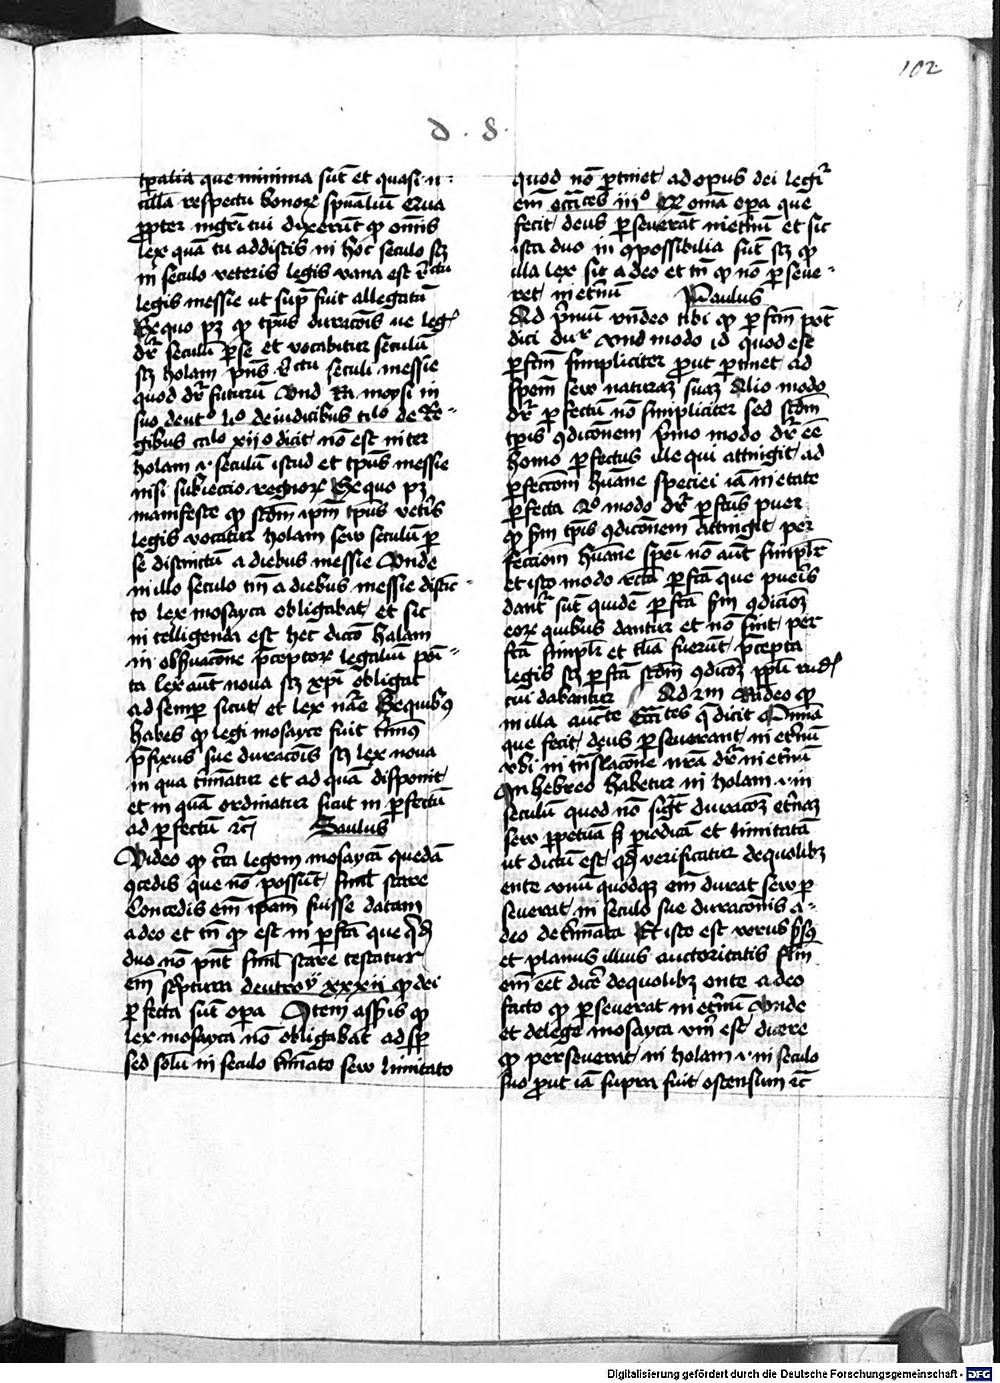 102
d . 8 .
tp̄alia que minima sūt et quasi n
respectu bonoꝝ sp̄ualiū
ꝓpter tui dixerūt ꝙ om̄is
lex quā tu addiscis in hoc seculo sꝫ
in seculo veteris legis vana est
legis messie ut supͣ fuit allegatū
Ex quo pꝫ ꝙ tp̄us duracōis ve leg
dr̄ seculū ꝑ se et vocabitur seculū
sꝫ holam seculi messie
quod dr̄ futurū Und Ra moysi in
suo deutᵒ liᵒ de iudicibus de Re-
gibus xiiᵒ dicit nō est inter
holam .i. seculū istud et tp̄us messie
nisi subieccio regnoꝝ Ex quo pꝫ
manifeste ꝙ scdm ip̄m tp̄us vet̄is
legis vocatur holam sew seculū ꝑ
se distinctū a diebus messie Unde
in illo seculo tm̄ a diebus messie distīc-
to lex mosayca obligabat et sic
intelligenda est hec dictō halam
in obẜuacōne p̄ceptoꝝ legaliū
ta lex aūt noua sꝫ xp̄i obligat
ad semꝑ sicut et lex nāe Ex quibꝰ
habes ꝙ legi mosayce fuit t̄minꝰ
p̄fixus sue duracōis sꝫ lex noua
in qua t̄minatur et ad quā disponit
et in quā ordinatur sicut inꝑfectū
ad ꝑfectū ꝛc̄ Saulus
Video ꝙ c̄ca legem mosaycā quedā
ꝯcedis que nō possunt simul stare
Concedis em̄ ip̄am fuisse datam
a deo et tn̄ ꝙ est inꝑfcā que quidē
duo nō pn̄t simul stare testatur
em̄ sc̄ptura deutroⁱʲ xxxii ꝙ dei
ꝑfecta sūt opa Item assēis ꝙ
lex mosayca nō obligabat ad sꝑ
sed solū in seculo t̄minato sew limitato
quod nō ꝑtinet ad opus dei legiͭ
em̄ eccꝭtes iiiᵒ omīa opa que
fecit deus ꝑseuerāt in et̄nū et sic
ista duo inꝯpossibilia sūt sꝫ ꝙ
illa lex sit a deo et tn̄ ꝙ nō ꝑseue-
ret in et̄nū Paulus
Ad p̄mū rn̄deo tibi ꝙ ꝑfcm̄ pōt
dici dupͬ und modo id quod est
ꝑfcm̄ simpliciter prout ꝑtinet ad
spem̄ sew naturaꝫ suaꝫ Alio modo
dr̄ ꝑfectū nō simpliciter sed scdm
tp̄is ꝯdicōnem p̄mo modo dr̄ eē
homo ꝑfectus ille qui attingit ad
ꝑfeccōem hūane speciei iā in etate
ꝑfecta 2ᵒ modo dr̄ ꝑfcūs puer
ꝙ scdm tp̄is ꝯdicōnem attingit per
feccōem hūane spēi nō aūt simplr̄
et isto modo ꝑfcā que pueris
dantur sūt quidē ꝑfcā scdm ꝯdicōeꝫ
eoꝝ quibus dantur et nō sint per
fcā simplr̄ et tlīa fuerūt p̄cepta
legis sꝫ ꝑfcā scdm ꝯdicōeꝫ ppl̄i rud
cui dabantur Ad 2m Rn̄deo ꝙ
in illa auctͭe Eccꝭtes q̄ dicit Omīa
que fecit deus ꝑseuerant in et̄nū
vbi in tn̄slacōne nr̄a dr̄ in et̄nū
In hebreo habetur in holam .i. in
seculū quod nō sigͭ duracōeꝫ et̄naꝫ
sew ꝑpetuā sꝫ piodicā et limitatā
ut dictū est qđ verificatur de quolibꝫ
ente vnū quodqꝫ em̄ durat sew ꝑ
seuerat in seculo sue duracōnis a
deo det̄minata Et iste est verus sēsꝰ
et planus illius auctoritatis
em̄ eēt dic̄e de quolibꝫ ente a deo
facto ꝙ ꝑseuerat in et̄nū Unde
et de lege mosayca est dicere
ꝙ perseuerat in holam .i. in seculo
suo prout iā supra fuit ostensum ꝛc̄
Digitalisierung gefördert durch die Deutsche Forschungsgemeinschaft - DFG